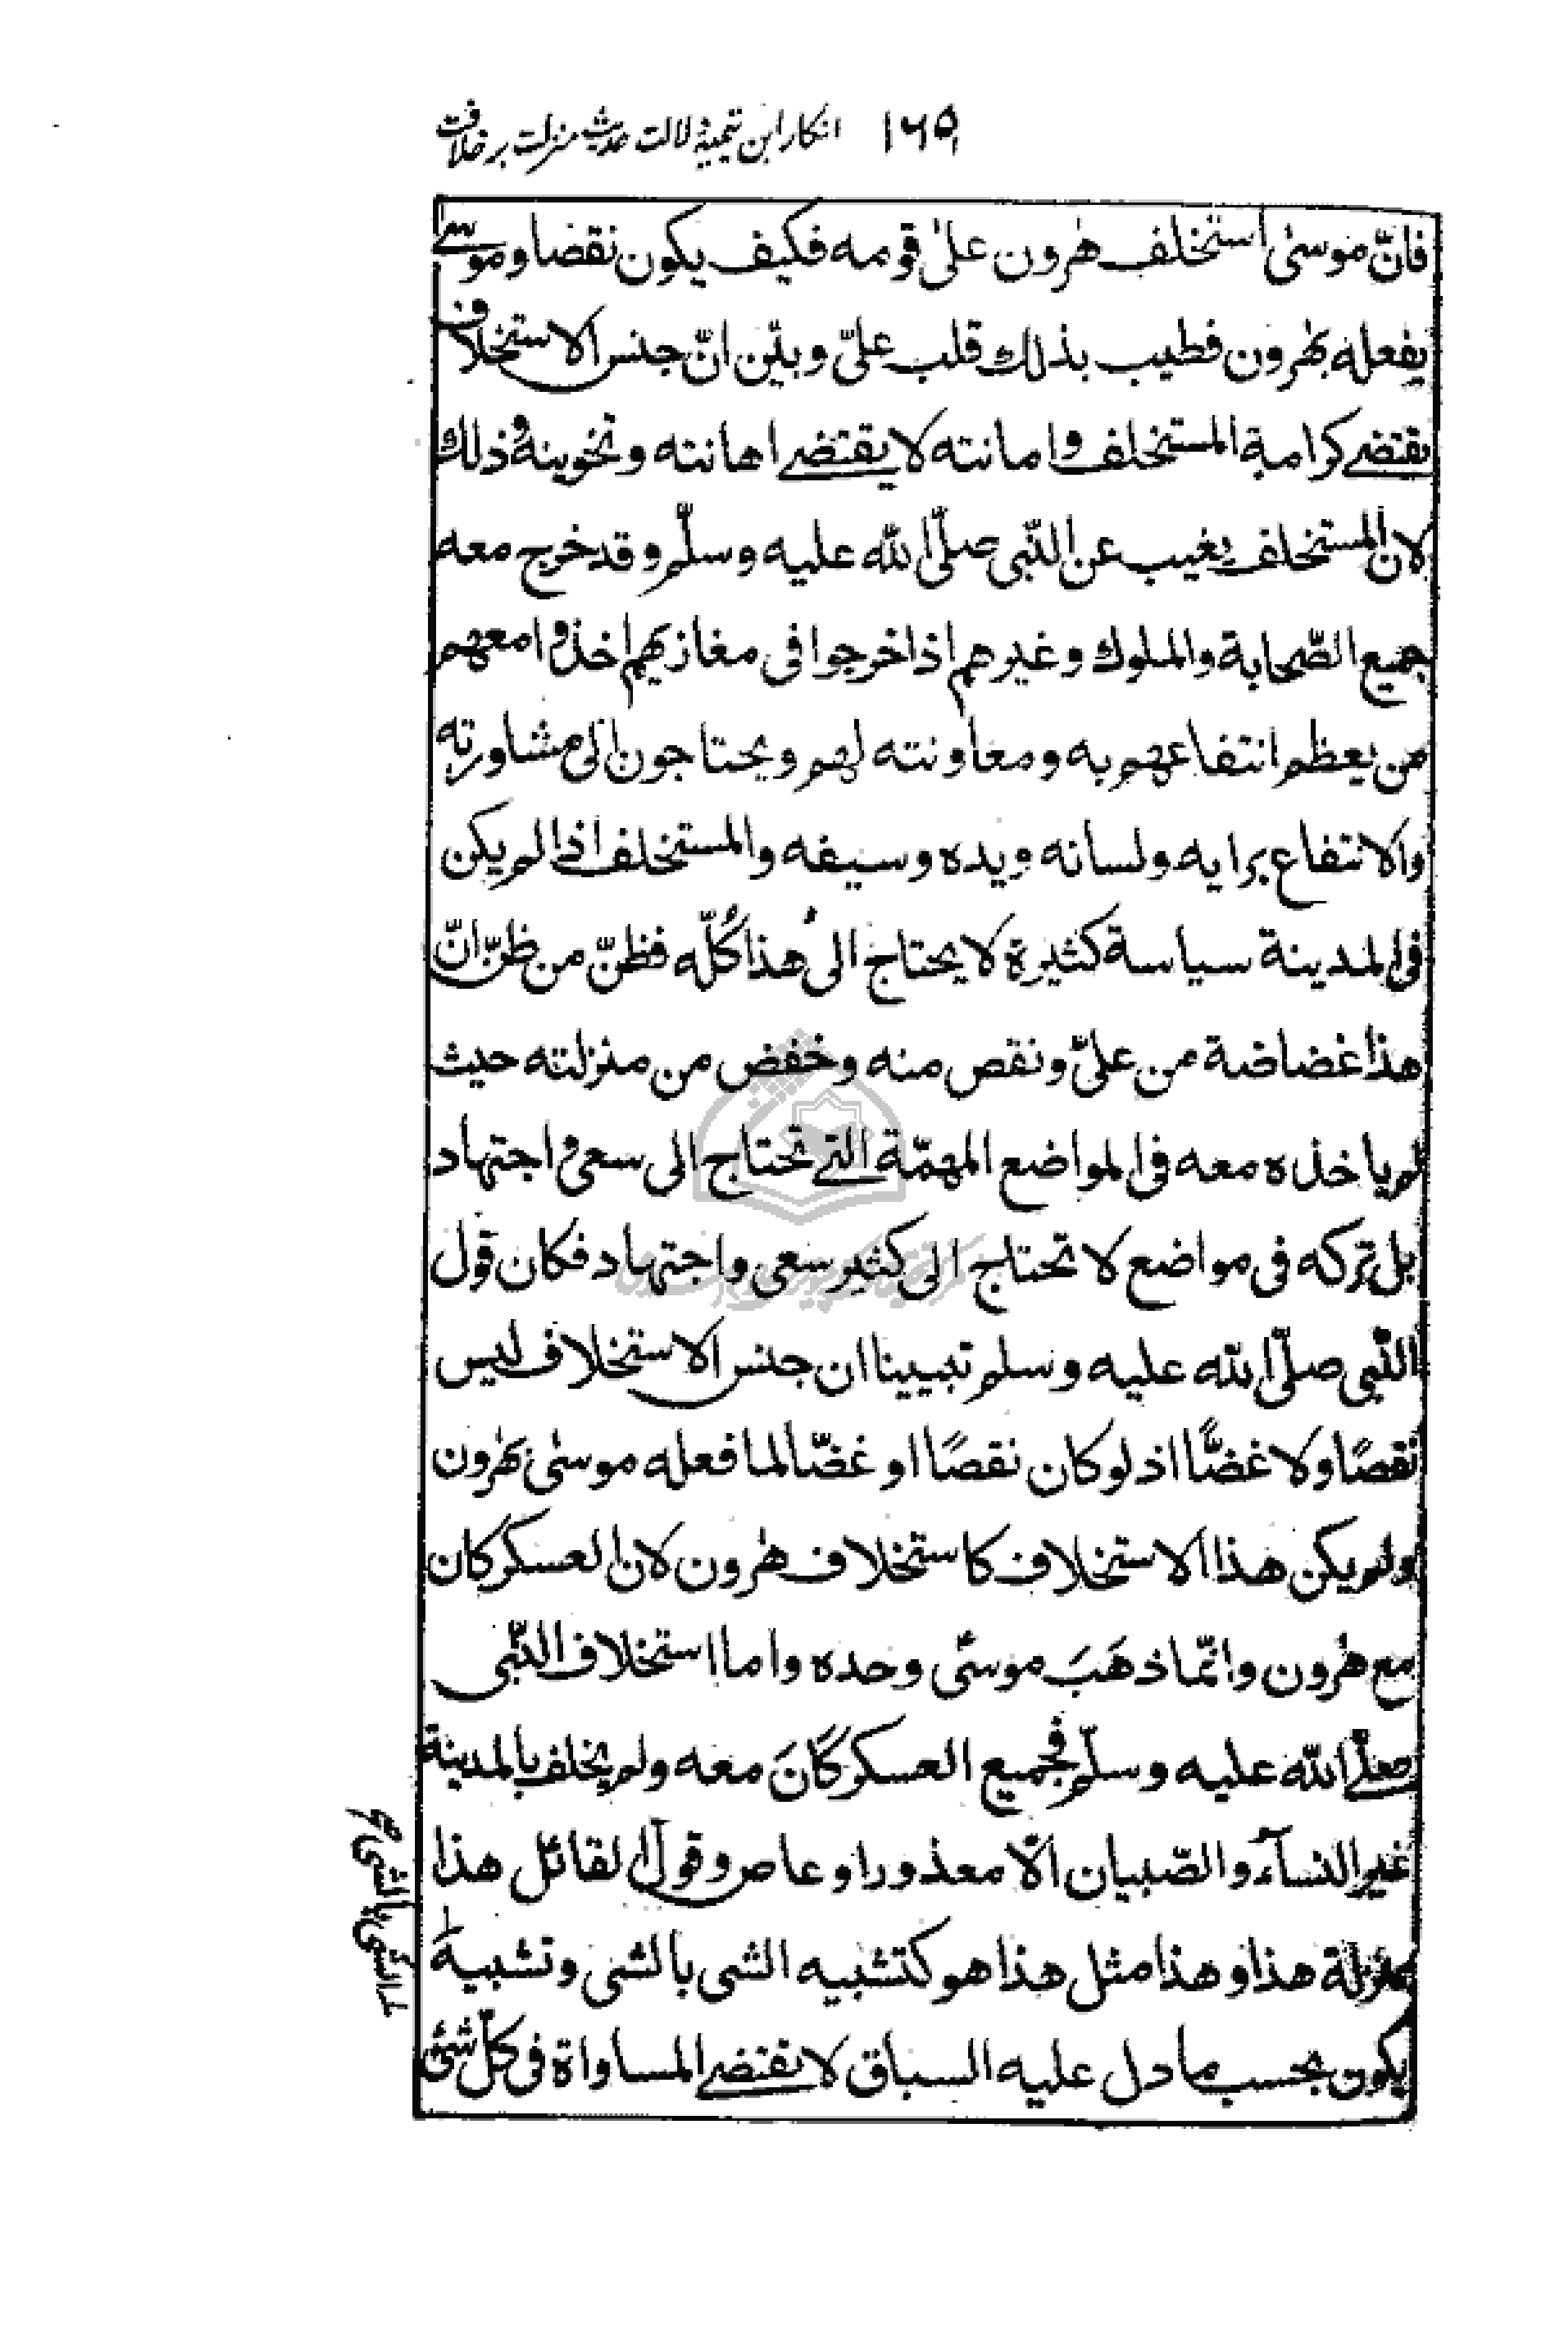 ۱۶۵ انکار ابن تیمیة دلالت حدیث منزلت بر خلافت
فانّ موسیٰ استخلف هٰرون علیٰ قومه فکیف یکون نقصا و موسیٰ
یفعله بهٰرون فطیب بذلك قلب علیّ و بیّن انّ جنس الاستخلاف
یقتضے کرامة المستخلف و امانته لا یقتضے اهانته و تخوینه و ذلك
لان المستخلف یغیب عن النّبی صلّی اللّه علیه و سلّم و قد خرج معه
جمیع الصّحابة و الملوك و غیرهم اذا خرجوا فی مغازیهم اخذوا معهم
من یعظم انتفاعهم به و معاونته لهم و یحتاجون الی مشاورته
و الانتفاع برایه و لسانه و یده و سیفه و المستخلف اذا لم یکن
فی المدینة سیاسة کثیرة لا یحتاج الیٰ هذا کُلّه فظنّ من ظنّ انّ
هذا غضاضة من علیّ و نقص منه و خفض من منزلته حیث
لم یاخذه معه فی المواضع المهمّة التے تحتاج الی سعی و اجتهاد
بل ترکه فی مواضع لا تحتاج الی کثیر سعی و اجتهاد فکان قول
النّبی صلّی اللّه علیه و سلم تبیینا ان جنس الاستخلاف لیس
نقصًا و لا غضًّا اذ لو کان نقصًا او غضّا لما فعله موسیٰ بهٰرون
و لم یکن هذا الاستخلاف کاستخلاف هٰرون لان العسکر کان
مع هٰرون و انّما ذهَبَ موسیٰ وحده و اما استخلاف النّبی
صلّے اللّه علیه و سلّم فجمیع العسکر کَانَ معه و لم یخلف بالمدینة
غیر النسآء و الصّبیان الّا معذور او عاص و قول القائل هذا
بمنزلة هذا و هذا مثل هذا هو کتشبیه الشی بالشی و تشبیه
یکون بحسب ما دل علیه السباق لا یقتضے المساواة فی کلّ شئ
الشی بالشی